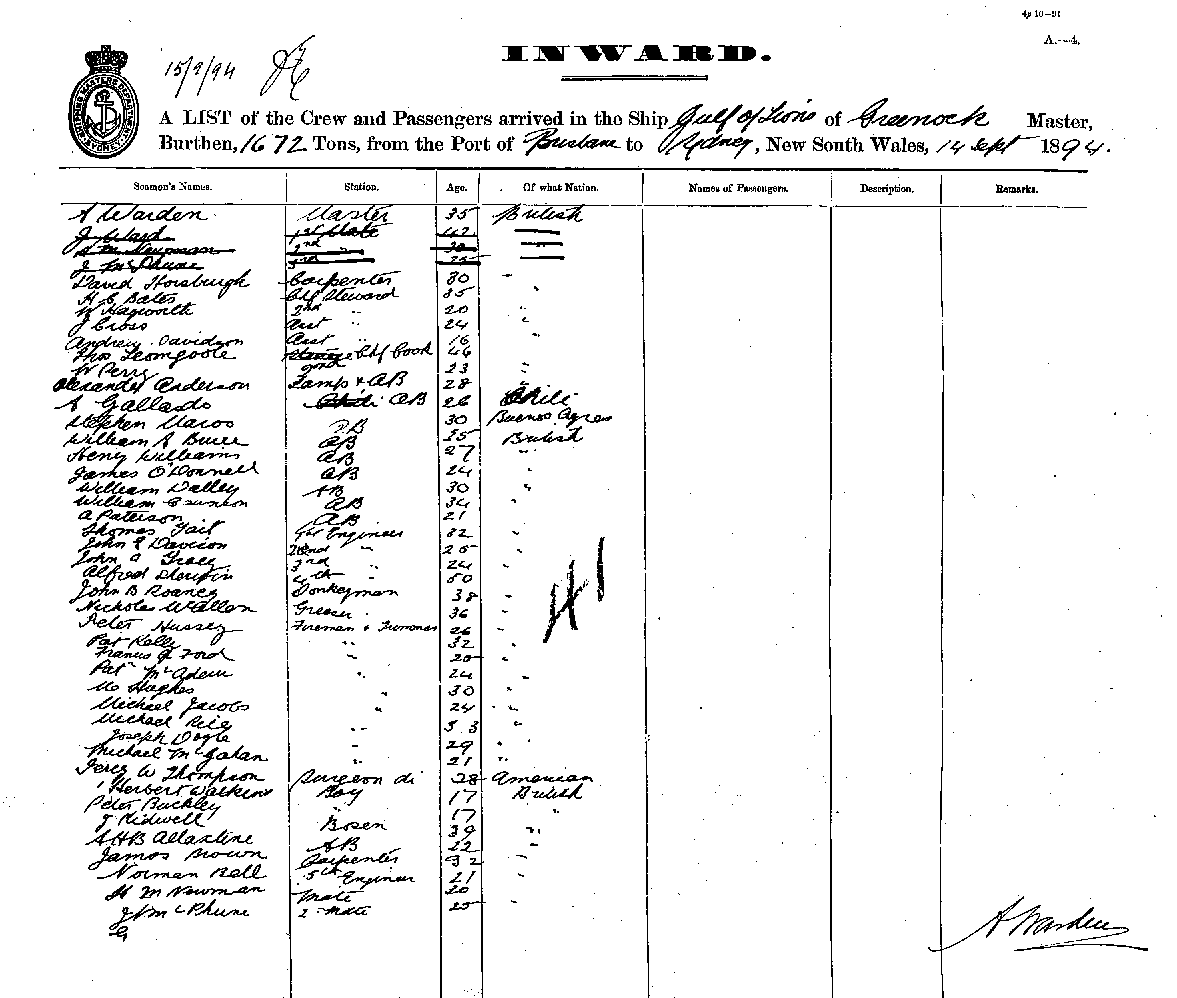 4p 10–91
A.—4.
INWARD.
15/9/94
SHIPPING MASTERS DEPARTMENT SYDNEY
A LIST of the Crew and Passengers arrived in the Ship Gulf of Lions of Greenock Master,
Burthen, 1672 Tons, from the Port of Brisbane to Sydney, New South Wales, 14 Sept 1894.
Seamen's Names. Station. Age. Of what Nation. Names of Passengers. Description. Remarks.
A Warden Master 35 British
J Ward 1st Mate 42
H M Newman 2nd " 30
J McPhune 3rd 25
David Horsburgh Carpenter 30 "
H E Bates Chf Steward 35 "
W Hagworth 2nd " 20 "
J Cross Asst 24 "
Andrew Davidson Asst 16 "
Thos Chf Cook 46 "
W Perry 2nd 23 "
Alexander Anderson Lamps & AB 28 "
A Gallardo AB 26 Chili
Stephen Maros AB 30 Buenos Ayres
William A AB 25 British
Henry Williams AB 27 "
James O'Donnell AB 24 "
William Dalley AB 30 "
William AB 34 "
A Paterson AB 21 "
Thomas Tait 1st Engineer 32 "
John E Davison 2nd " 25 "
John A Tracy 3rd " 24 "
Alfred 4th " 50 "
John B Roaney Donkeyman 38 "
Nicholas Wallen Greaser 36 "
Peter Hussey Fireman & Trimmer 26 "
Pat Kelly " 32 "
Francis J Ford " 20 "
Pat McAdem " 24 "
Mc Hughes 30 "
Michael Jacobs " 24 "
Michael Rice " 33 "
Joseph Dogle "
Michael McGahan " 29 "
" 21 "
Percy W Thompson Surgeon 28 American
Herbert Watkins Boy 17 British
Peter Buckley " 17 "
J Kidwell Bosen 39 "
A H B Allastine AB 22 "
James Brown Carpenter 32
Norman Bell 5th Engineer 21
H M Newman Mate 30
J McPhune 2 Mate 25
41
A Warden